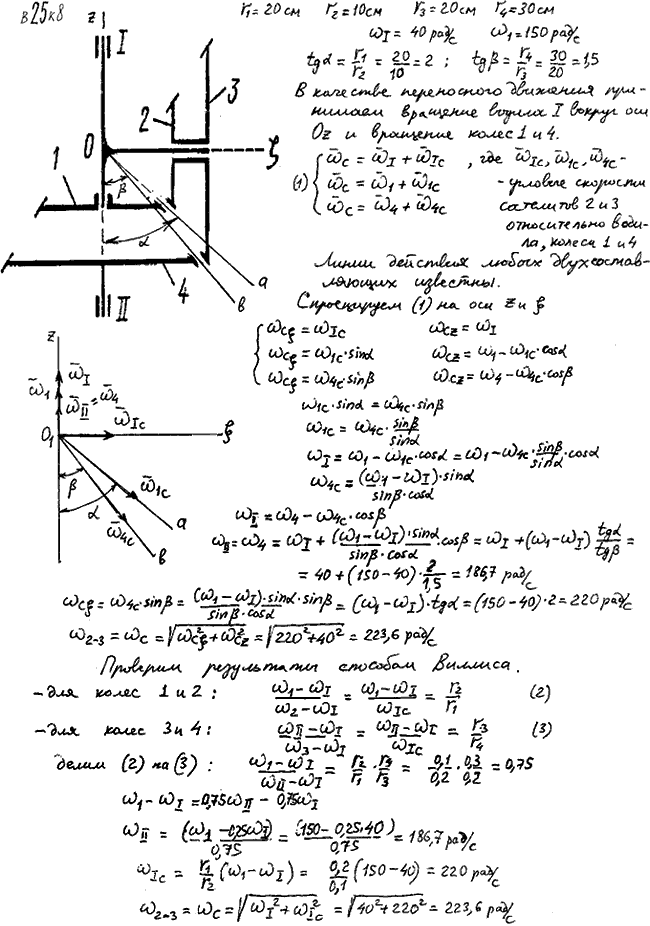 в25к8
r₁=20см r₂=10см r₃=20см r₄=30см
ω_I = 40 рад/с ω₁=150 рад/с
tgα = r₁/r₂ = 20/10 = 2 ; tgβ = r₄/r₃ = 30/20 = 1,5
В качестве переносного движения при-
нимаем вращение водила I вокруг оси
Oz и вращение колес 1 и 4.
(1) { ω̄_C = ω̄_I + ω̄_IC , где ω̄_IC, ω̄_1C, ω̄_4C -
ω̄_C = ω̄_1 + ω̄_1C - угловые скорости
ω̄_C = ω̄_4 + ω̄_4C сателитов 2 и 3
относительно води-
ла, колеса 1 и 4
Линии действия любых двух состав-
ляющих известны.
Спроецируем (1) на оси z и ξ
{ ω_Cξ = ω_IC ω_Cz = ω_I
ω_Cξ = ω_1C·sinα ω_Cz = ω_1 - ω_1C·cosα
ω_Cξ = ω_4C·sinβ ω_Cz = ω_4 - ω_4C·cosβ
ω_1C·sinα = ω_4C·sinβ
ω_1C = ω_4C · sinβ/sinα
ω_I = ω_1 - ω_1C·cosα = ω_1 - ω_4C · sinβ/sinα · cosα
ω_4C = (ω_1 - ω_I)·sinα / sinβ·cosα
ω_II = ω_4 - ω_4C·cosβ
ω_II = ω_4 = ω_I + (ω_1-ω_I)·sinα / sinβ·cosα · cosβ = ω_I + (ω_1-ω_I) tgα/tgβ =
= 40 + (150-40) · 2/1,5 = 186,7 рад/с
ω_Cξ = ω_4C sinβ = (ω_1-ω_I)·sinα·sinβ / sinβ·cosα = (ω_1-ω_I)·tgα = (150-40)·2 = 220 рад/с
ω_2-3 = ω_C = √(ω_Cξ² + ω_Cz²) = √(220²+40²) = 223,6 рад/с
Проверим результаты способом Виллиса.
- для колес 1 и 2 : (ω_1-ω_I)/(ω_2-ω_I) = (ω_1-ω_I)/ω_IC = r₂/r₁ (2)
- для колес 3 и 4 : (ω_II-ω_I)/(ω_3-ω_I) = (ω_II-ω_I)/ω_IC = r₃/r₄ (3)
делим (2) на (3) : (ω_1-ω_I)/(ω_II-ω_I) = r₂/r₁ · r₄/r₃ = 0,1/0,2 · 0,3/0,2 = 0,75
ω_1 - ω_I = 0,75ω_II - 0,75ω_I
ω_II = (ω_1 - 0,25ω_I)/0,75 = (150-0,25·40)/0,75 = 186,7 рад/с
ω_IC = r₁/r₂ (ω_1-ω_I) = 0,2/0,1 (150-40) = 220 рад/с
ω_2-3 = ω_C = √(ω_I² + ω_IC²) = √(40²+220²) = 223,6 рад/с
z
I
3
2
O
ξ
1
β
α
4
a
b
II
z
ω̄_I
ω̄_1
ω̄_II = ω̄_4
ω̄_IC
O₁
ξ
β
α
ω̄_1C
ω̄_4C
a
b